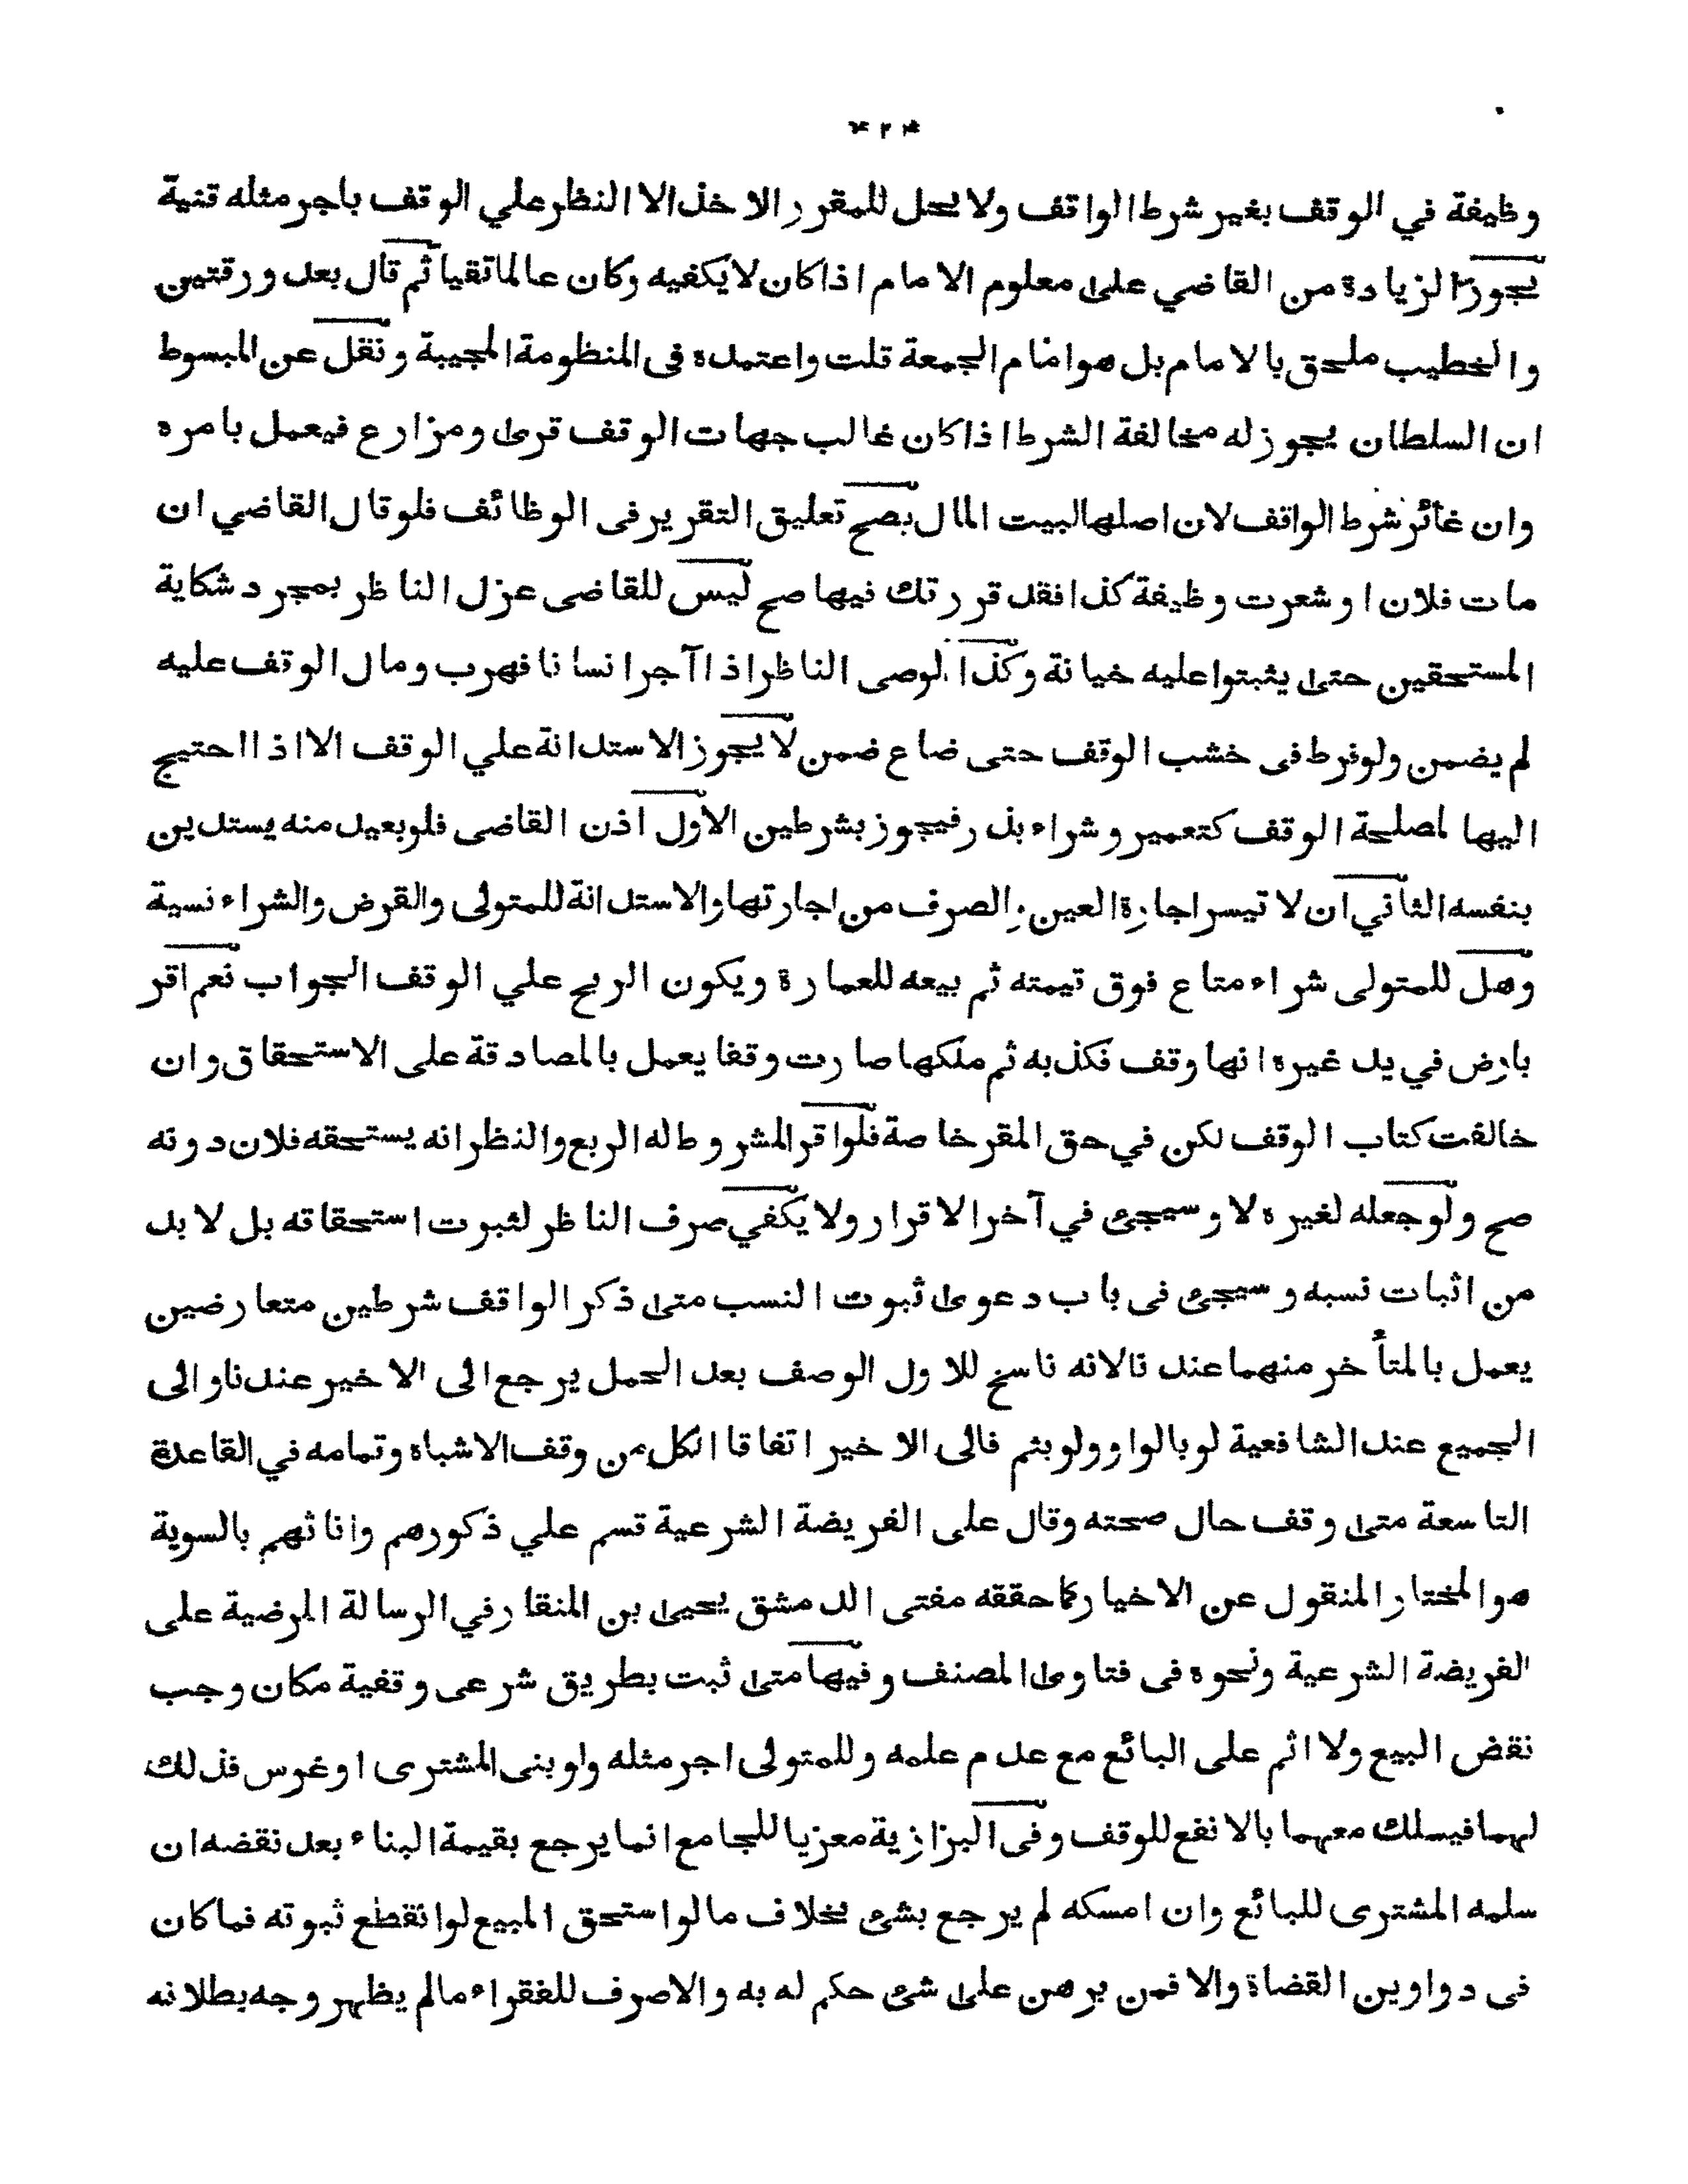 * ٢ *
وظيفة في الوقف بغير شرط الواقف ولا يحل للمقرر الاخذ الا النظر علي الوقف باجر مثله قنية
يجوز الزيادة من القاضي على معلوم الامام اذا كان لا يكفيه وكان عالما تقيا ثم قال بعد ورقتين
والخطيب ملحق بالامام بل هو امام الجمعة قلت واعتمده فى المنظومة المحبية ونقل عن المبسوط
ان السلطان يجوز له مخالفة الشرط اذا كان غالب جهات الوقف قرى ومزارع فيعمل بامره
وان غائر شرط الواقف لان اصلها لبيت المال يصح تعليق التقرير فى الوظائف فلو قال القاضي ان
مات فلان او شعرت وظيفة كذا فقد قررتك فيها صح ليس للقاضى عزل الناظر بمجرد شكاية
المستحقين حتى يثبتوا عليه خيانة وكذا الوصى الناظر اذا آجر انسانا فهرب ومال الوقف عليه
لم يضمن ولو فرط فى خشب الوقف حتى ضاع ضمن لا يجوز الاستدانة علي الوقف الا اذا احتيج
اليها لمصلحة الوقف كتعمير وشراء بذر فيجوز بشرطين الاول اذن القاضى فلو بعيد منه يستدين
بنفسه الثاني ان لا تيسر اجارة العين والصرف من اجارتها والاستدانة للمتولى والقرض والشراء نسية
وهل للمتولى شراء متاع فوق قيمته ثم بيعه للعمارة ويكون الربح علي الوقف الجواب نعم اقر
بارض في يد غيره انها وقف فكذبه ثم ملكها صارت وقفا يعمل بالمصادقة على الاستحقاق وان
خالفت كتاب الوقف لكن في حق المقر خاصة فلو اقر المشروط له الريع والنظر انه يستحقه فلان دونه
صح ولو جعله لغيره لا وسيجئ في آخر الاقرار ولا يكفي صرف الناظر لثبوت استحقاقه بل لا بد
من اثبات نسبه وسيجئ فى باب دعوى ثبوت النسب متى ذكر الواقف شرطين متعارضين
يعمل بالمتأخر منهما عندنا لانه ناسخ للاول الوصف بعد الحمل يرجع الى الاخير عندنا والى
الجميع عند الشافعية لو بالواو ولو بثم فالى الاخير اتفاقا الكل من وقف الاشباه وتمامه في القاعدة
التاسعة متى وقف حال صحته وقال على الفريضة الشرعية قسم علي ذكورهم واناثهم بالسوية
هو المختار المنقول عن الاخيار كما حققه مفتى الدمشق يحيى بن المنقار في الرسالة المرضية على
الفريضة الشرعية ونحوه فى فتاوى المصنف وفيها متى ثبت بطريق شرعى وقفية مكان وجب
نقض البيع ولا اثم على البائع مع عدم علمه وللمتولى اجر مثله ولو بنى المشترى او غرس فذلك
لهما فيسلك معهما بالانفع للوقف وفى البزازية معزيا للجامع انما يرجع بقيمة البناء بعد نقضه ان
سلمه المشترى للبائع وان امسكه لم يرجع بشئ بخلاف ما لو استحق المبيع لو انقطع ثبوته فما كان
فى دواوين القضاة والا فمن برهن على شئ حكم له به والا صرف للفقراء ما لم يظهر وجه بطلانه